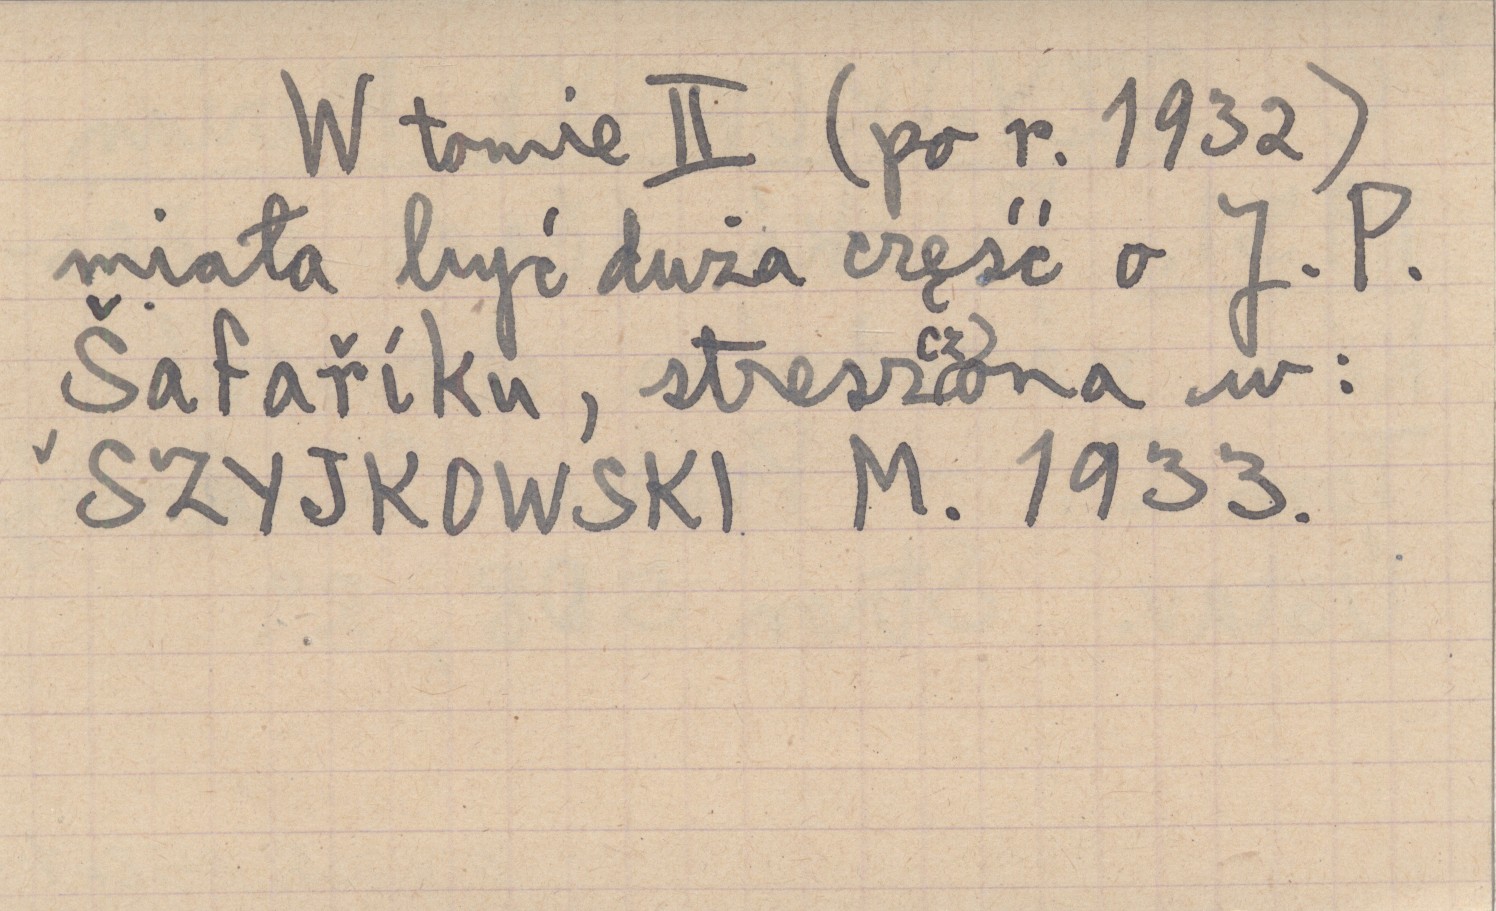 W tomie II (po r. 1932)
miała być duża część o J. P.
Šafaříku, streszczona w:
SZYJKOWSKI M. 1933.